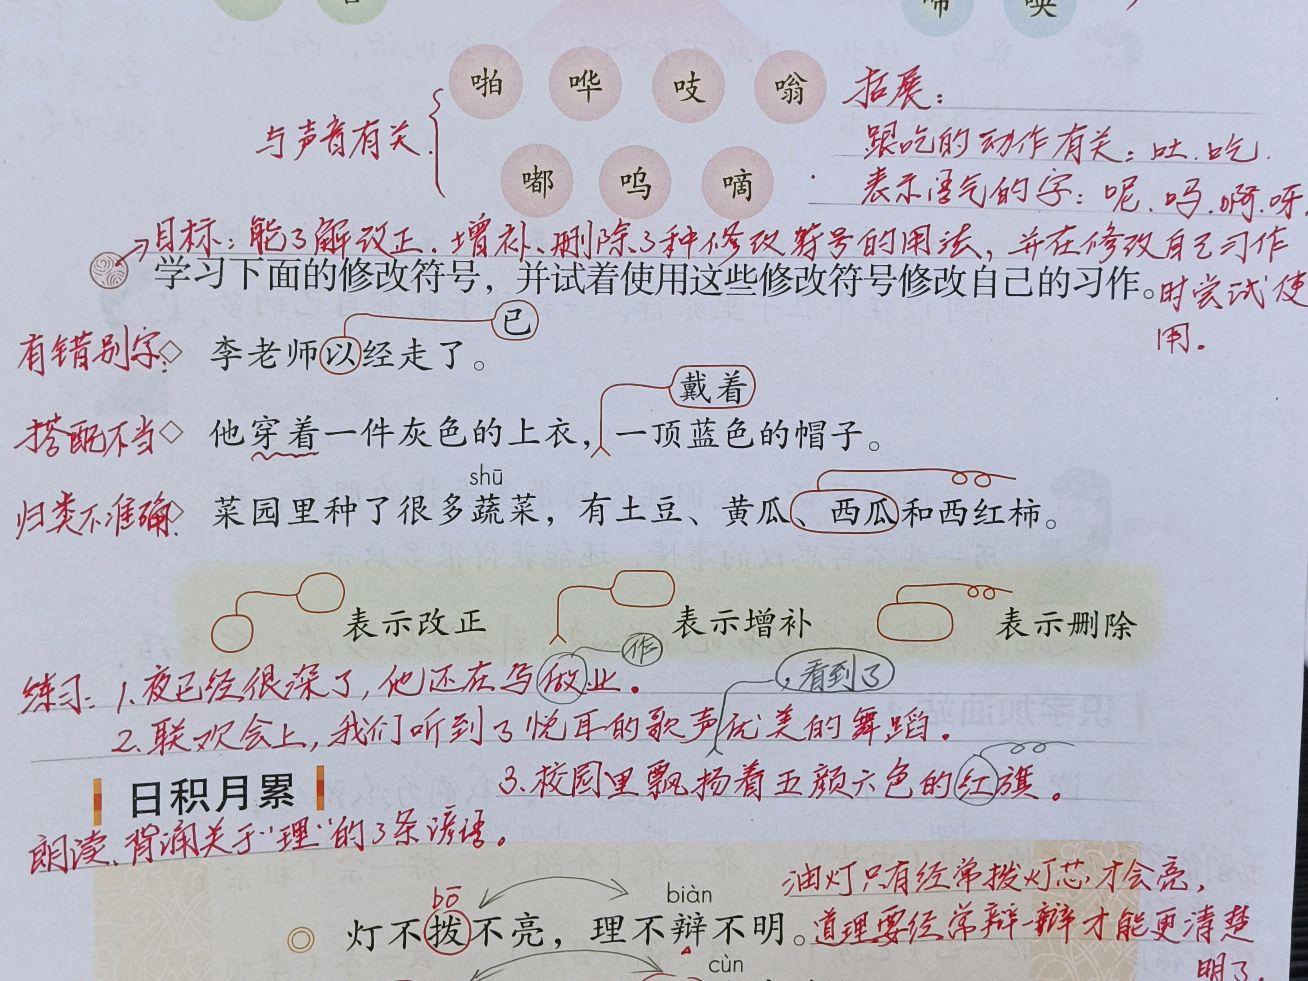 啼 唤
啪 哗 吱 嗡
拓展：
与声音有关.
跟吃的动作有关：吐.吃.
嘟 呜 嘀
表示语气的字：呢.吗.啊.呀.
目标：能了解改正.增补、删除3种修改符号的用法，并在修改自己习作
学习下面的修改符号，并试着使用这些修改符号修改自己的习作。
时尝试使
用.
已
有错别字：◇ 李老师以经走了。
戴着
搭配不当◇ 他穿着一件灰色的上衣，一顶蓝色的帽子。
shū
归类不准确◇ 菜园里种了很多蔬菜，有土豆、黄瓜、西瓜和西红柿。
表示改正 表示增补 表示删除
作
练习：1.夜已经很深了，他还在写做业。
，看到了
2.联欢会上，我们听到了悦耳的歌声优美的舞蹈.
3.校园里飘扬着五颜六色的红旗。
日积月累
朗读、背诵关于“理”的3条谚语。
油灯只有经常拨灯芯才会亮，
bō biàn
灯不拨不亮，理不辩不明。
道理要经常辩一辩才能更清楚
明了.
cùn